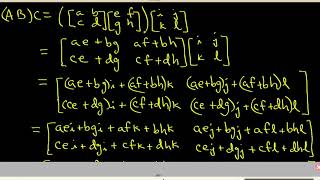 (AB)C = ([a b c d][e f g h])[i j k l]
= [ae + bg af + bh ce + dg cf + dh][i j k l]
= [(ae + bg)i + (af + bh)k (ae + bg)j + (af + bh)l
(ce + dg)i + (cf + dh)k (ce + dg)j + (cf + dh)l]
= [aei + bgi + afk + bhk aej + bgj + afl + bhl
cei + dgi + cfk + dhk cej + dgj + cfl + dhl]